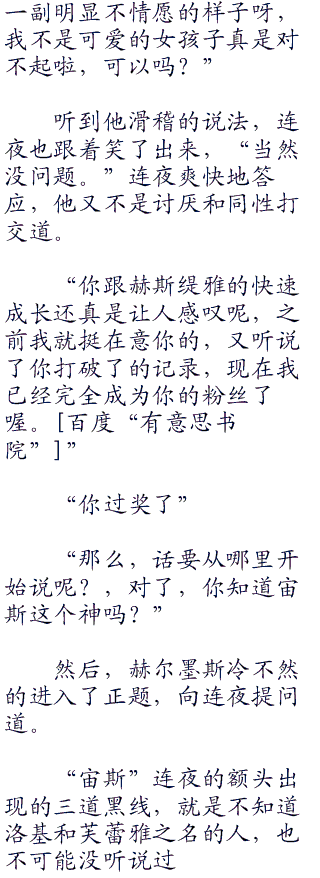 一副明显不情愿的样子呀，
我不是可爱的女孩子真是对
不起啦，可以吗？”
听到他滑稽的说法，连
夜也跟着笑了出来，“当然
没问题。”连夜爽快地答
应，他又不是讨厌和同性打
交道。
“你跟赫斯缇雅的快速
成长还真是让人感叹呢，之
前我就挺在意你的，又听说
了你打破了的记录，现在我
已经完全成为你的粉丝了
喔。[百度“有意思书
院”]”
“你过奖了”
“那么，话要从哪里开
始说呢？，对了，你知道宙
斯这个神吗？”
然后，赫尔墨斯冷不然
的进入了正题，向连夜提问
道。
“宙斯”连夜的额头出
现的三道黑线，就是不知道
洛基和芙蕾雅之名的人，也
不可能没听说过